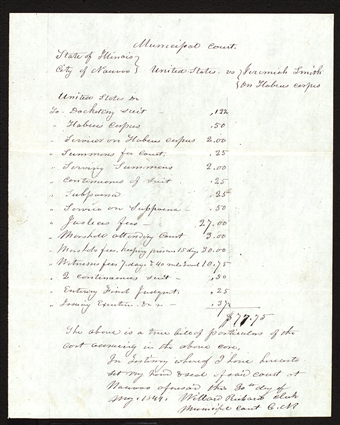 Municipal Court
State of Illinois
City of Nauvoo } United States vs { Jeremiah Smith
on Habeus corpus
United States Dr
To Docketing Suit - .12½
" Habeus Corpus .50
" Service on Habeus corpus 2.00
" Summons for Court .25
" Serving Summons 2.00
" Continuance of suit .25
" Subpoena .25
" Service on Suppoena - .50
" Justices fees - 27.00
" Marshall attending Court 3.00
" Marshals fees, keeping prisoner 15 days 30.00
" Witnesses fees 7 days & 40 miles travel 10.75
" 2 continuances suit - .50
" Entering Final Judgmt. .25
" Issuing Execution &c - .37½
$77.75
The above is a true bill of particulars of the
cost accruing in the above case.
In testimony whereof I have hereunto
set my hand & seal of said court at
Nauvoo aforesaid this 30th day of
May 1844. Willard Richards clerk
Municipal Court C. N.